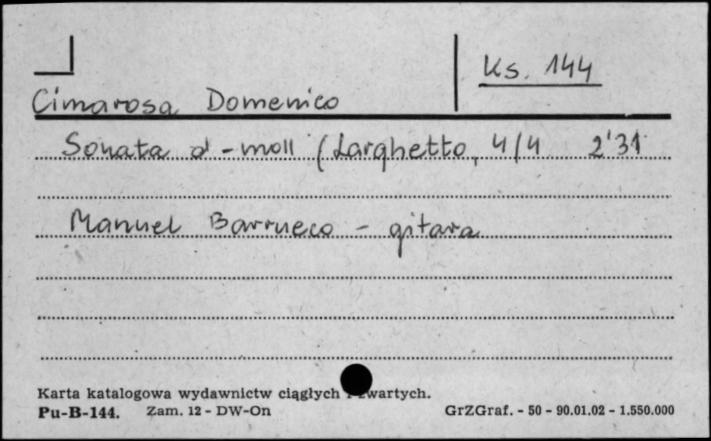 Ks. 144
Cimarosa Domenico
Sonata d-moll (Larghetto, 4/4 2'31
Manuel Barrueco - gitara
Karta katalogowa wydawnictw ciągłych i zwartych.
Pu-B-144. Zam. 12 - DW-On GrZGraf. - 50 - 90.01.02 - 1.550.000